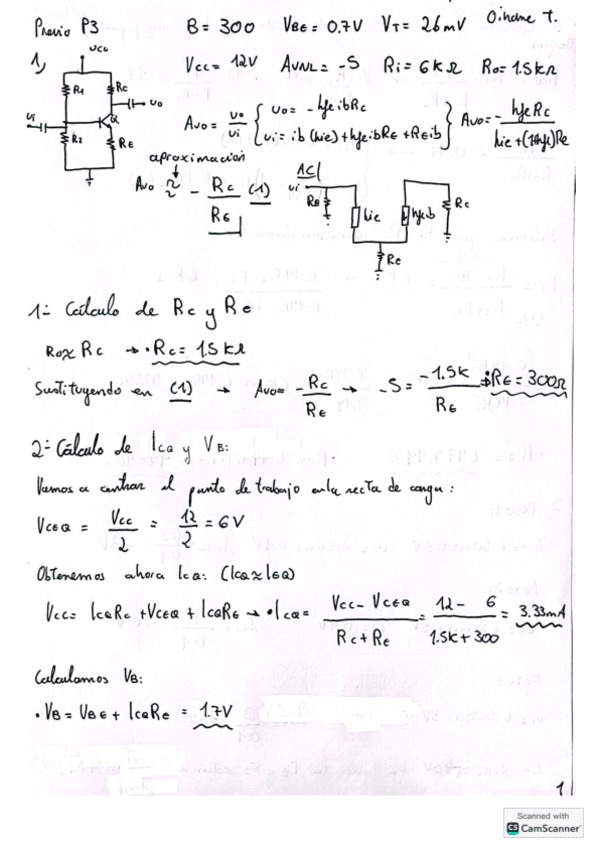 Previo P3 B = 300 VBE = 0.7V VT = 26mV Oihane T.
1) Vcc = 12V AVNL = -5 Ri = 6kΩ Ro = 1.5kΩ
Vcc
R1 Rc
vo
vi
Q
R2 RE
Avo = vo/vi { vo = -hfe ib Rc
vi = ib (hie) + hfe ib RE + RE ib } Avo = - hfe Rc / hie + (1+hfe) Re
aproximación
Avo ≈ - Rc/RE (1)
AC
vi RB hie hfe ib Rc
Re
1- Cálculo de Rc y Re
Ro ≈ Rc → · Rc = 1.5kΩ
Sustituyendo en (1) → Avo = -Rc/RE → -5 = -1.5k/RE RE = 300Ω
2- Cálculo de ICQ y VB:
Vamos a centrar el punto de trabajo en la recta de carga:
VCEQ = Vcc/2 = 12/2 = 6V
Obtenemos ahora ICQ: (ICQ ≈ IEQ)
Vcc = ICQ Rc + VCEQ + ICQ RE → · ICQ = Vcc - VCEQ / Rc + RE = 12 - 6 / 1.5k + 300 = 3.33mA
Calculamos VB:
· VB = VBE + ICQ Re = 1.7V
1
Scanned with
CS CamScanner